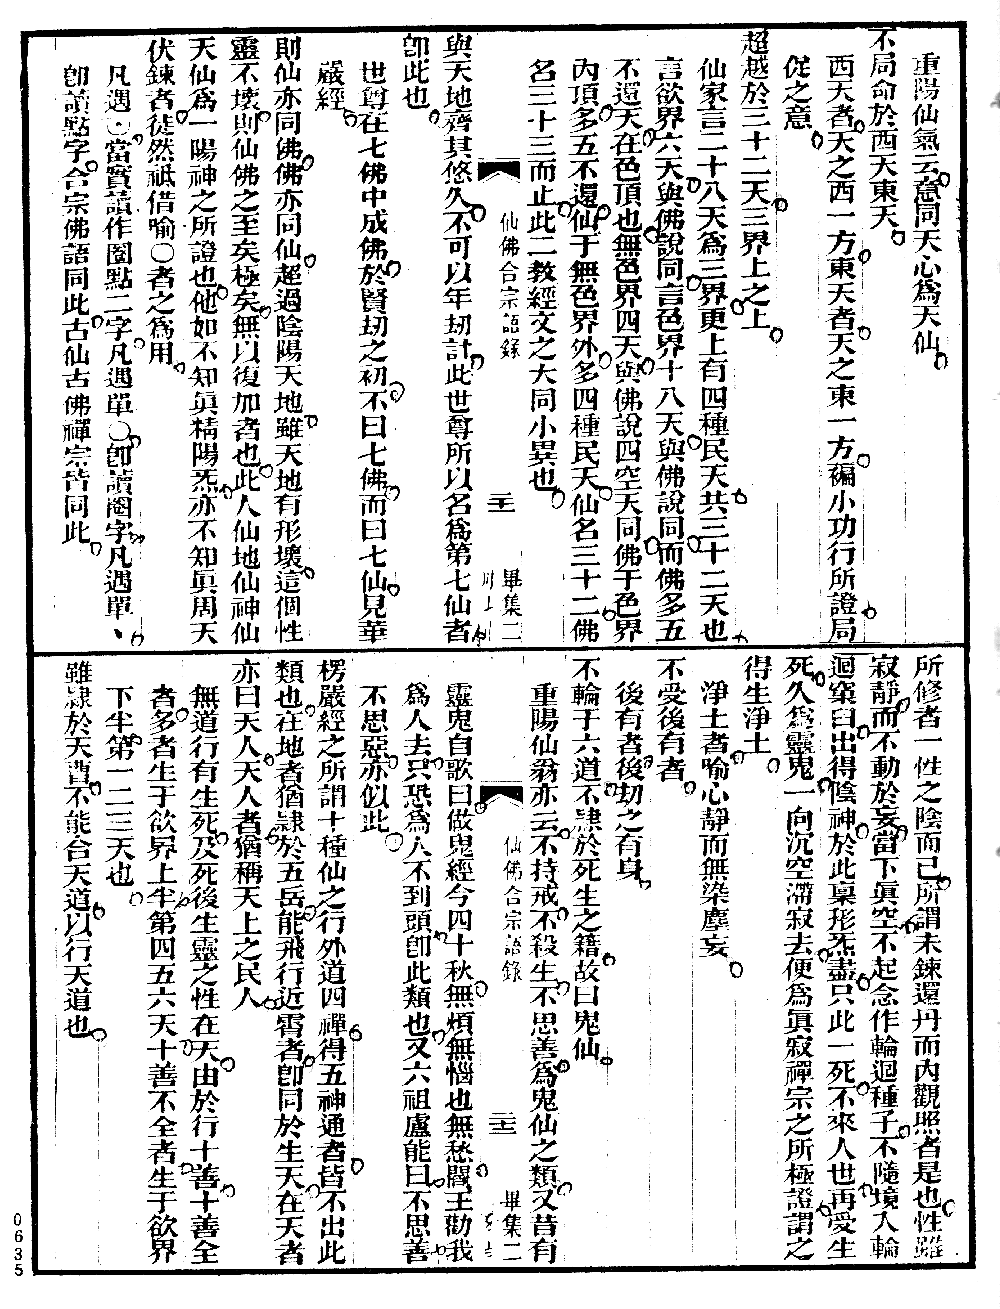 重陽仙氣云意同天心爲天仙
不局命於西天東天
西天者天之西一方東天者天之東一方褊小功行所證局
促之意
超越於三十二天三界上之上
仙家言二十八天爲三界更上有四種民天共三十二天也
言欲界六天與佛說同言色界十八天與佛說同而佛多五
不還天在色頂也無色界四天與佛說四空天同佛于色界
內頂多五不還仙于無色界外多四種民天仙名三十二佛
名三十三而止此二教經文之大同小異也
仙佛合宗語錄
畢集二
與天地齊其悠久不可以年刧計此世尊所以名爲第七仙者
卽此也
世尊在七佛中成佛於賢刧之初不曰七佛而曰七仙見華
嚴經
則仙亦同佛佛亦同仙超過陰陽天地雖天地有形壞這個性
靈不壞則仙佛之至矣極矣無以復加者也此人仙地仙神仙
天仙爲一陽神之所證也他如不知眞精陽炁亦不知眞周天
伏鍊者徒然祇借喻○者之爲用
凡遇○當實讀作圈點二字凡遇單○卽讀圈字凡遇單、
卽讀點字合宗佛語同此古仙古佛禪宗皆同此
所修者一性之陰而已所謂未鍊還丹而內觀照者是也性雖
寂靜而不動於妄當下眞空不起念作輪迴種子不隨境入輪
迴窠臼出得陰神於此稟形炁盡只此一死不來人世再受生
死久爲靈鬼一向沉空滯寂去便爲眞寂禪宗之所極證謂之
得生淨土
淨土者喻心靜而無染塵妄
不受後有者
後有者後刧之有身
不輪于六道不隷於死生之籍故曰鬼仙
重陽仙翁亦云不持戒不殺生不思善爲鬼仙之類又昔有
仙佛合宗語錄
畢集二
靈鬼自歌曰做鬼經今四十秋無煩無惱也無愁閻王勸我
爲人去只恐爲人不到頭卽此類也又六祖盧能曰不思善
不思惡亦似此
楞嚴經之所謂十種仙之行外道四禪得五神通者皆不出此
類也在地者猶隷於五岳能飛行近霄者卽同於生天在天者
亦曰天人天人者猶稱天上之民人
無道行有生死及死後生靈之性在天由於行十善十善全
者多者生于欲界上半第四五六天十善不全者生于欲界
下半第一二三天也
雖隷於天曹不能合天道以行天道也
0635